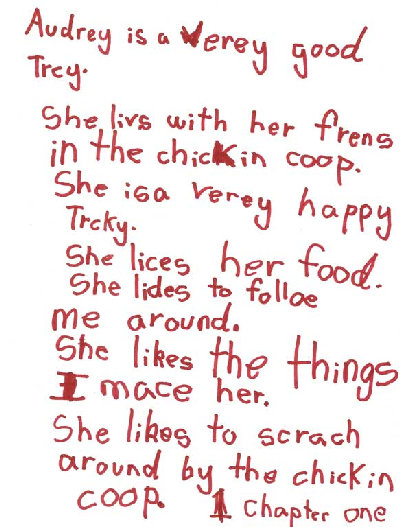 Audrey is a Verey good
Trey.
She livs with her frens
in the chicKin coop.
She is a verey happy
Trcky.
She lices her food.
She lides to folloe
me around.
She likes the things
I mace her.
She likes to scrach
around by the chickin
coop. 1 chapter one